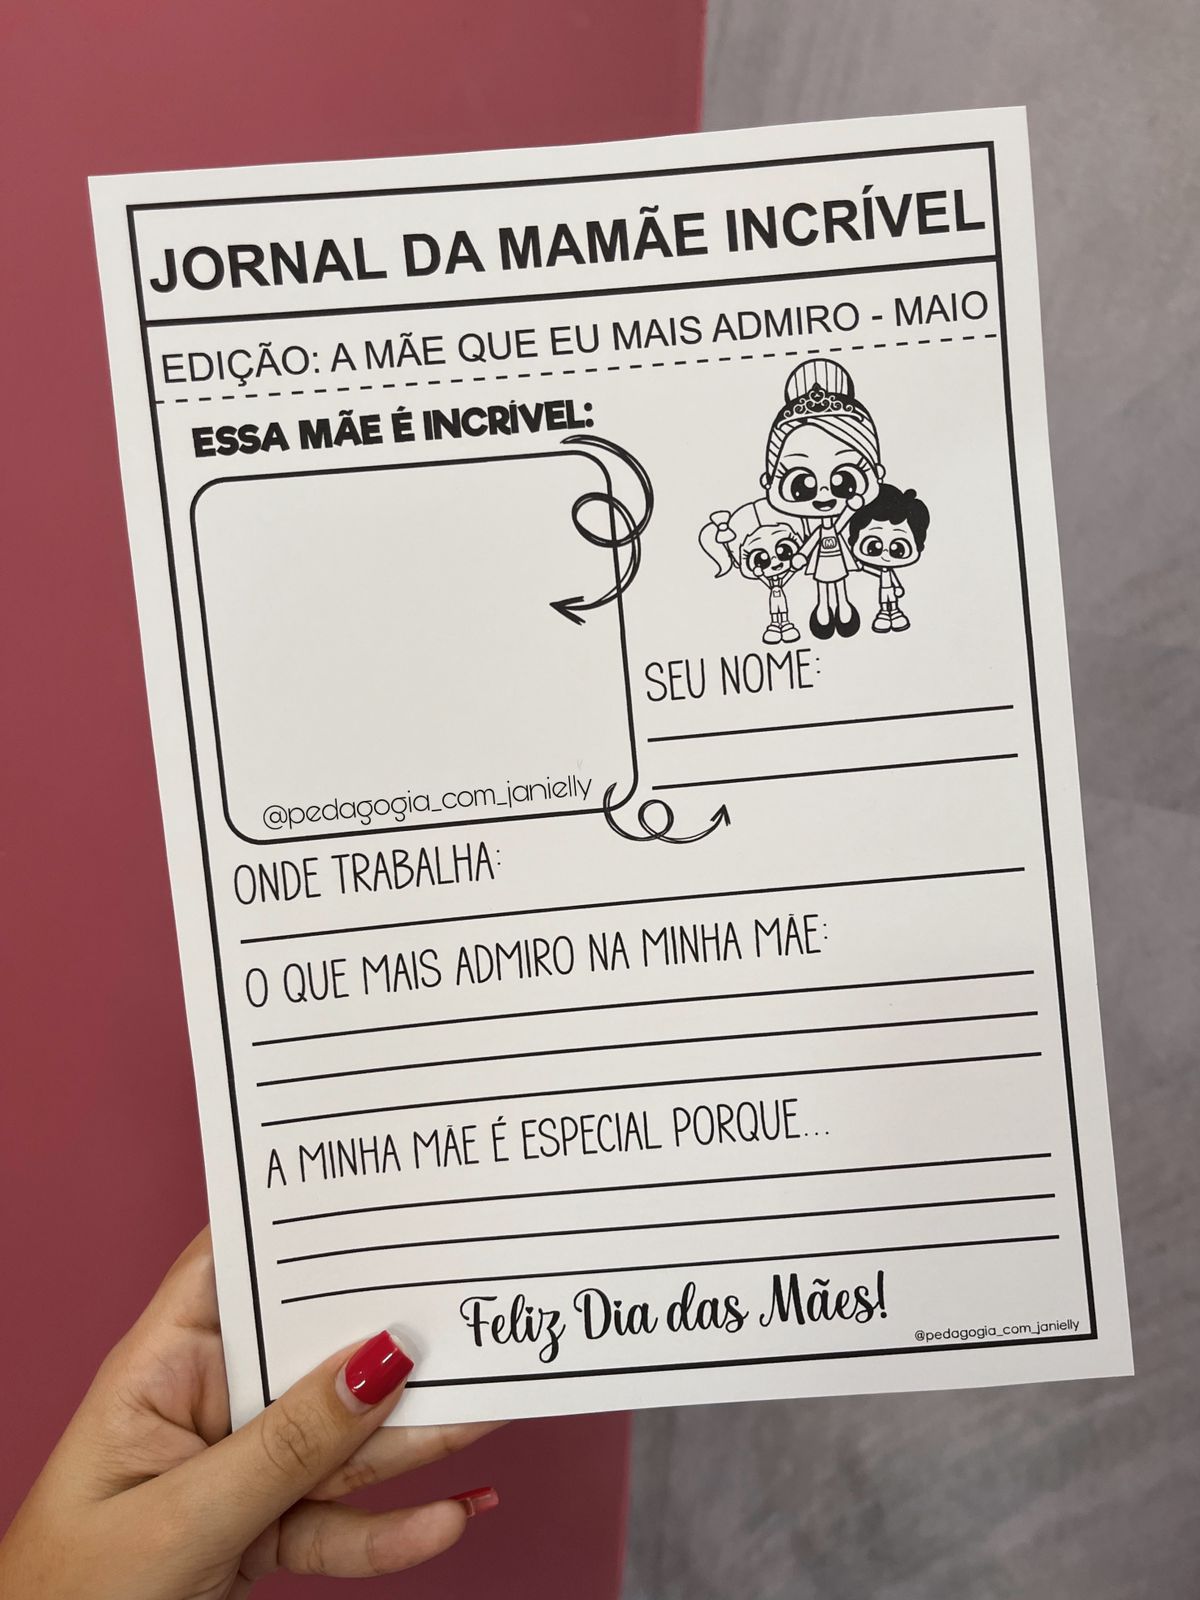 JORNAL DA MAMÃE INCRÍVEL
EDIÇÃO: A MÃE QUE EU MAIS ADMIRO - MAIO
ESSA MÃE É INCRÍVEL:
M
SEU NOME:
@pedagogia_com_janielly
ONDE TRABALHA:
O QUE MAIS ADMIRO NA MINHA MÃE:
A MINHA MÃE É ESPECIAL PORQUE...
Feliz Dia das Mães!
@pedagogia_com_janielly